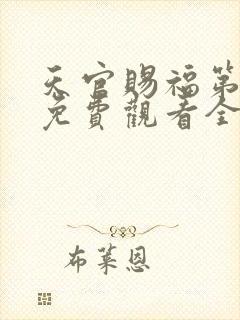 天官賜福第
免費觀看全
布萊恩